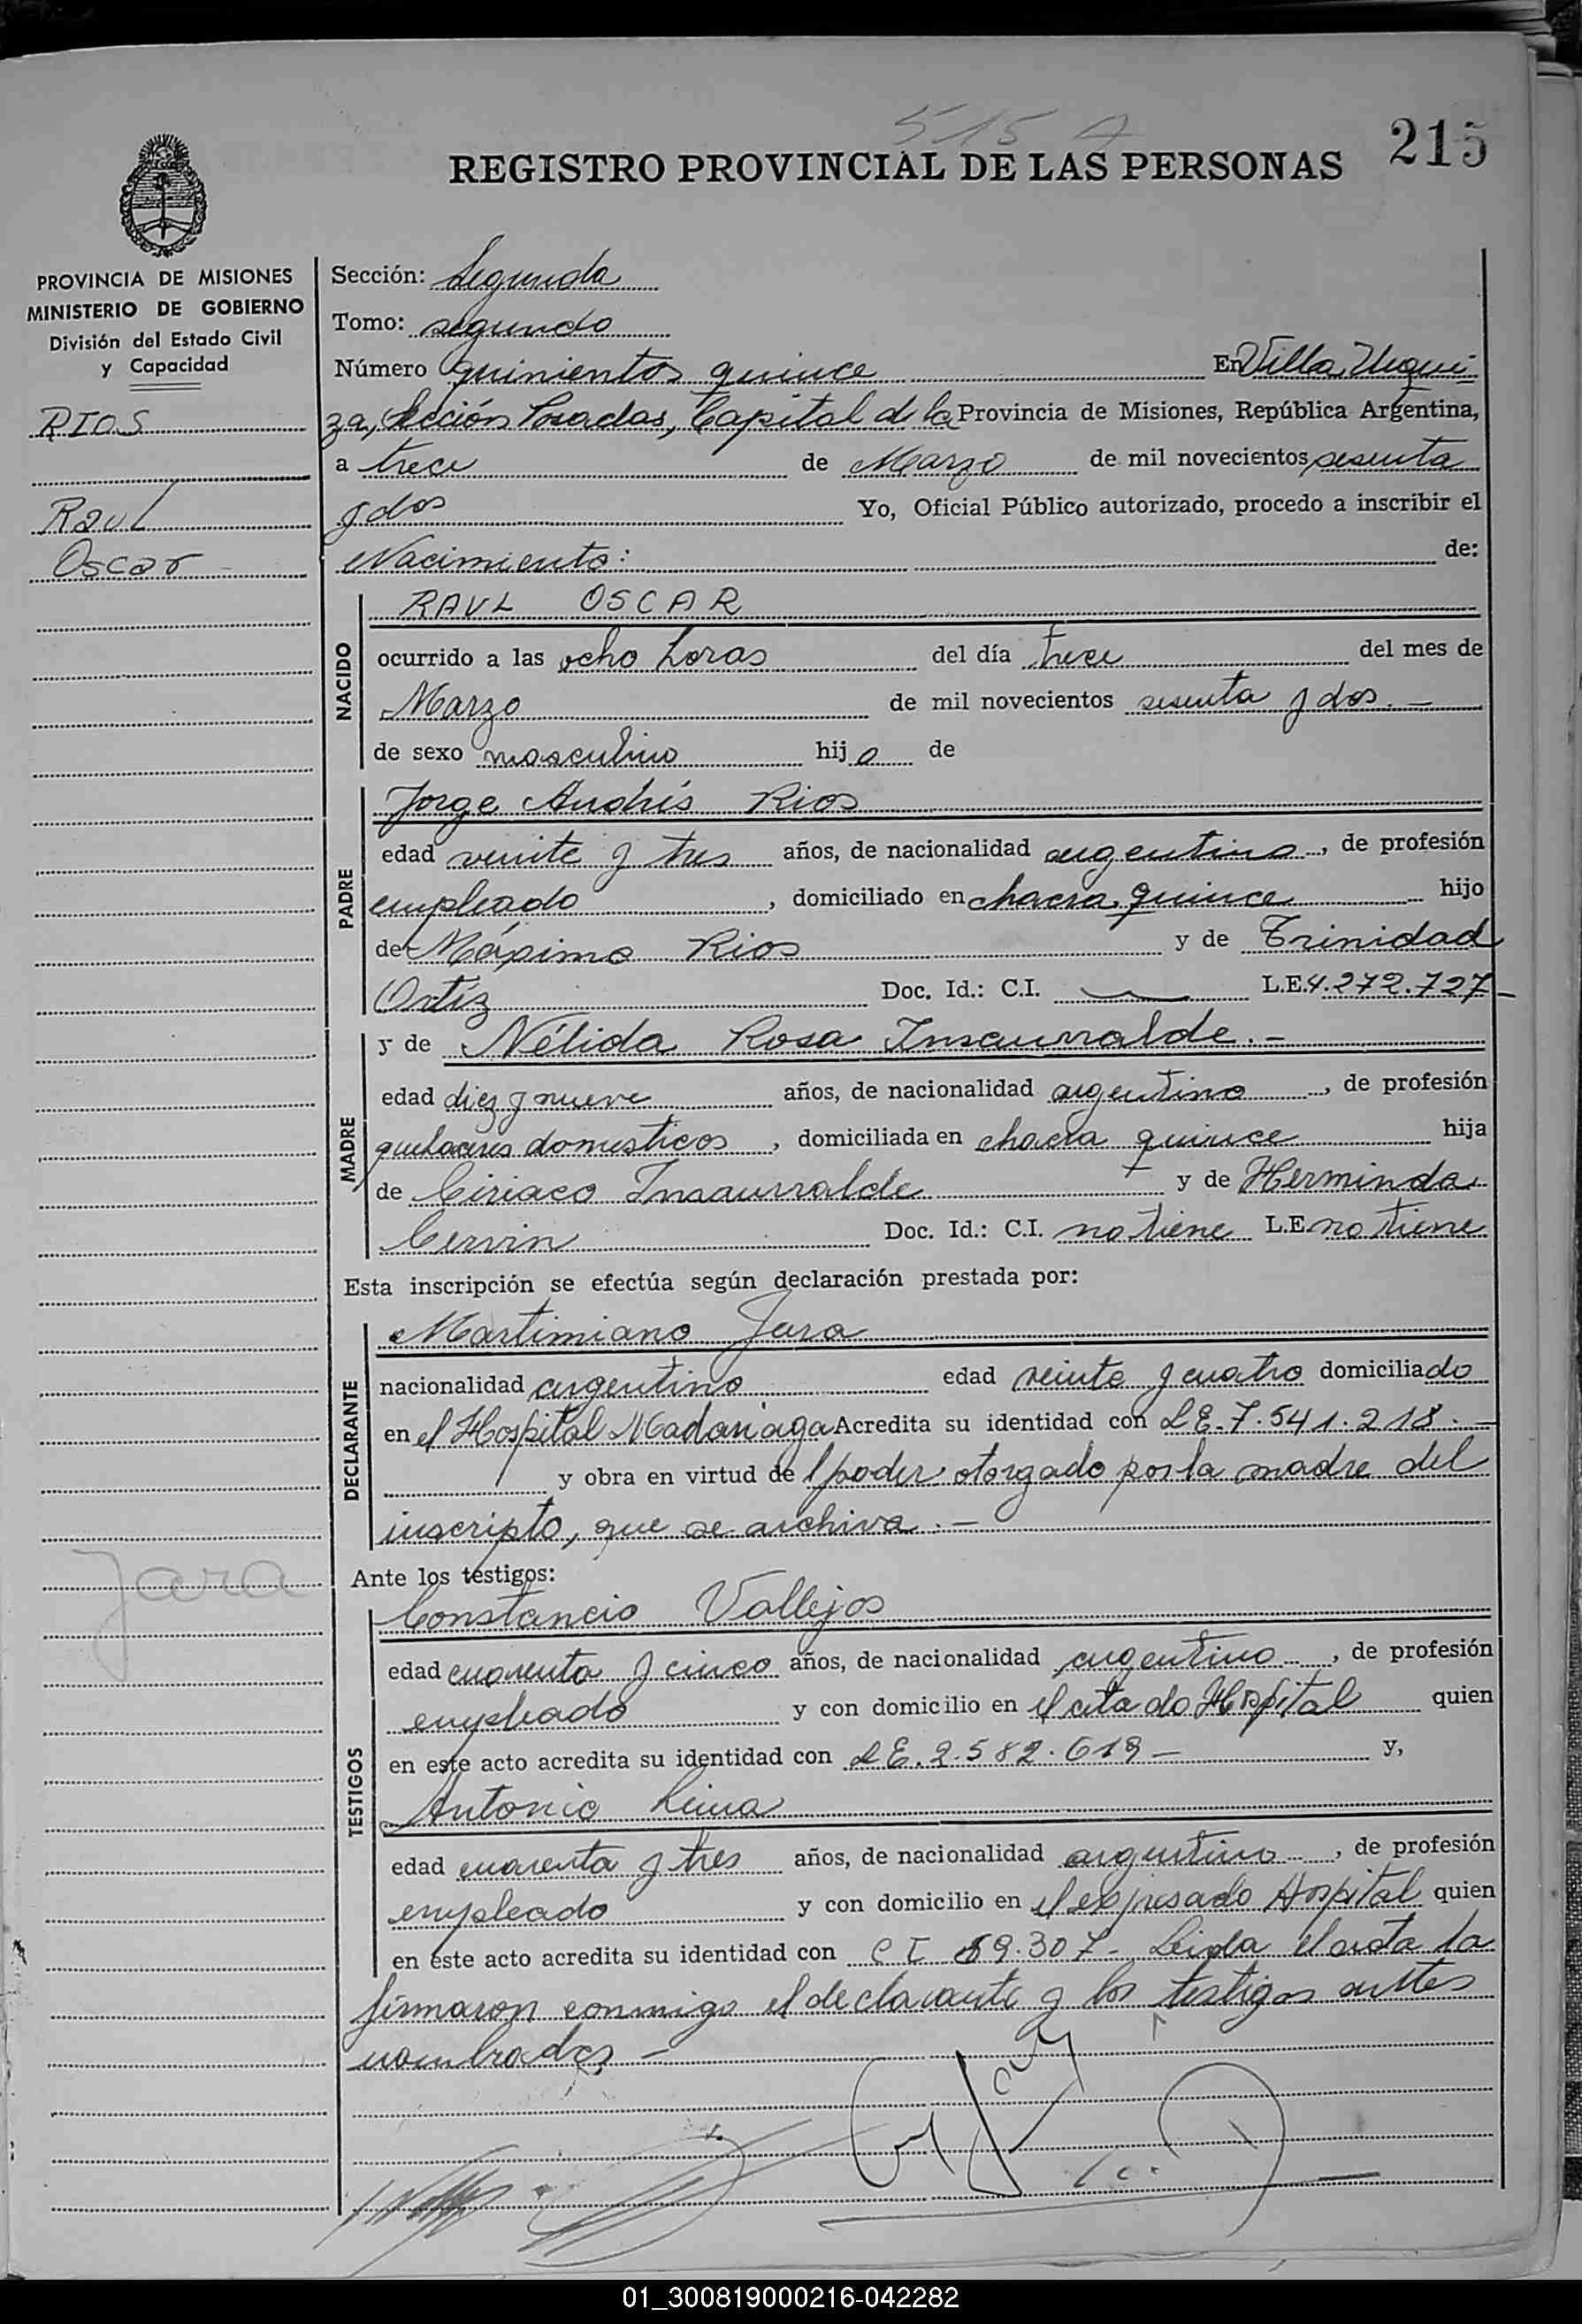 515 A
215
REGISTRO PROVINCIAL DE LAS PERSONAS
PROVINCIA DE MISIONES
MINISTERIO DE GOBIERNO
División del Estado Civil
y Capacidad
RIOS
Raul
Oscar
Jara
Sección: Segunda
Tomo: segundo
Número quinientos quince En Villa Urqui
za, Sección Posadas, Capital de la Provincia de Misiones, República Argentina,
a trece de Marzo de mil novecientos sesenta
y dos Yo, Oficial Público autorizado, procedo a inscribir el
Nacimiento: de:
NACIDO
RAUL OSCAR
ocurrido a las ocho horas del día trece del mes de
Marzo de mil novecientos sesenta y dos. —
de sexo masculino hijo de
PADRE
Jorge Andrés Rios
edad veinte y tres años, de nacionalidad argentino, de profesión
empleado, domiciliado en chacra quince hijo
de Máximo Rios y de Trinidad
Ortíz Doc. Id.: C.I. — L.E. 4.272.727 —
MADRE
y de Nélida Rosa Insaurralde. —
edad diez y nueve años, de nacionalidad argentina, de profesión
quehaceres domesticos, domiciliada en chacra quince hija
de Ciriaco Insaurralde y de Herminda
Cervin Doc. Id.: C.I. no tiene L.E. no tiene
Esta inscripción se efectúa según declaración prestada por:
DECLARANTE
Martimiano Jara
nacionalidad argentino edad veinte y cuatro domiciliado
en el Hospital Madariaga Acredita su identidad con L E. 7.541.218. —
y obra en virtud del poder otorgado por la madre del
inscripto, que se archiva. —
Ante los testigos:
TESTIGOS
Constancio Vallejos
edad cuarenta y cinco años, de nacionalidad argentino, de profesión
empleado y con domicilio en el citado Hospital quien
en este acto acredita su identidad con L E. 2.582.619 — y,
Antonio Lima
edad cuarenta y tres años, de nacionalidad argentino, de profesión
empleado y con domicilio en el expresado Hospital quien
en este acto acredita su identidad con C I 59.307 — Leida el acta la
firmaron conmigo el declarante y los testigos antes
nombrados —
01_300819000216-042282